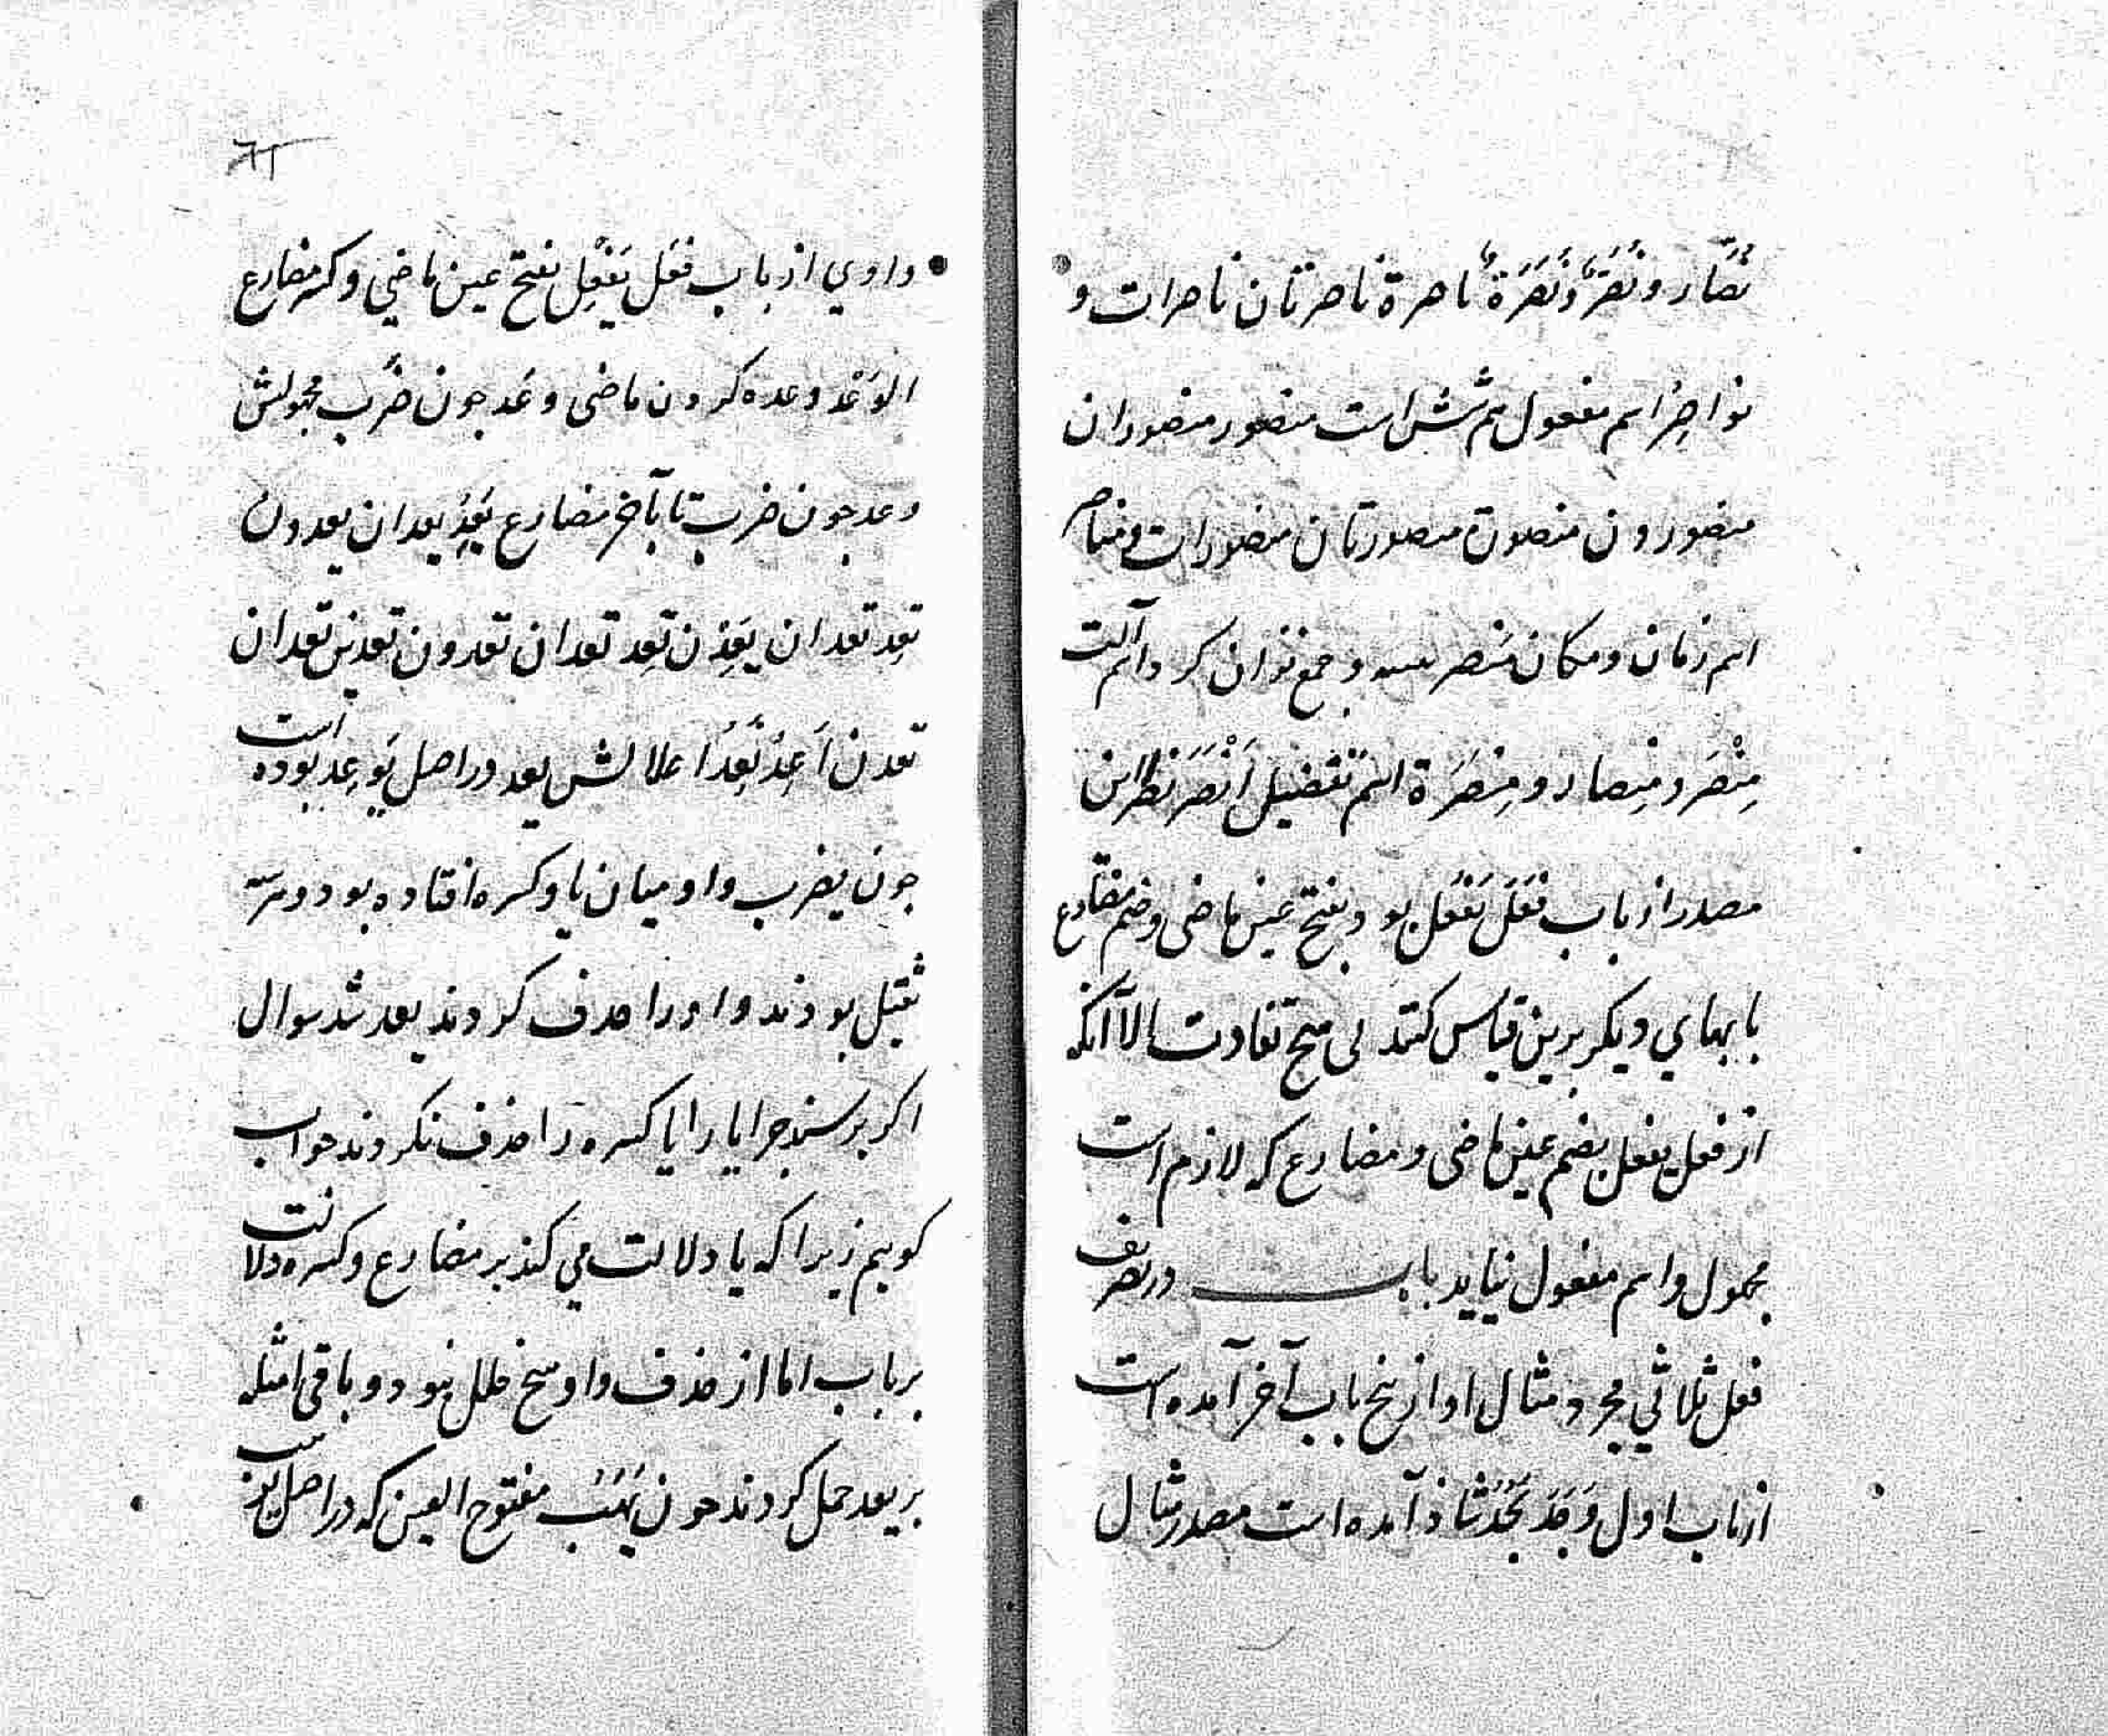 نُصّار و نُصَّرٌ و نَصَرَةٌ ناصرة ناصرتان ناصرات و
نواصِرُ اسم مفعول هم شش است منصور منصوران
منصورون منصورة منصورتان منصورات و مناصر
اسم زمان و مکان مَنصر تثنیه و جمع نتوان کرد و اسم آلت
مِنْصَر و مِنصار و مِنصَرَة اسم تفضیل اَنْصَر نَظَر این
مصدر از باب فَعَلَ یَفعُل بود بفتح عین ماضی و ضم مضارع
بابهای دیکر برین قیاس کنند بی هیچ تفاوت الا آنکه
از فعل یفعل بضم عین ماضی و مضارع که لازم است
مجهول و اسم مفعول نیاید باب در تصریف
فعل ثلاثی مجرد مثال او از پنج باب آخر آمده است
از باب اول وَجَدَ یَجُدُ شاذ آمده است مصدر مثال
٦١
واوي از باب فعَل یَفْعِل بفتح عین ماضی و کسر مضارع
الوَعْد وعده کردن ماضی وعَد جون ضَرَب مجهولش
وعد جون ضرب تا بآخر مضارع یَعِدُ یعدان یعدون
تَعِد تعدان یَعِدْن تَعِد تعدان تعدون تعدین تعدان
تعدن اَعِدُ نَعِدُ اعلالش یعد در اصل یَوعِد بوده است
جون یضرب واو میان یا و کسره افتاده بود و هر سه
ثقیل بودند واو را حذف کردند یعد شد سوال
اکر پرسند جرا یا را یا کسره را حذف نکردند جواب
کوییم زیرا که یا دلالت می کند بر مضارع و کسره دلالت
بر باب اما از حذف واو هیچ خلل نبود و باقی امثله
بر یعد حمل کردند جون یَهَبُ مفتوح العین که در اصل